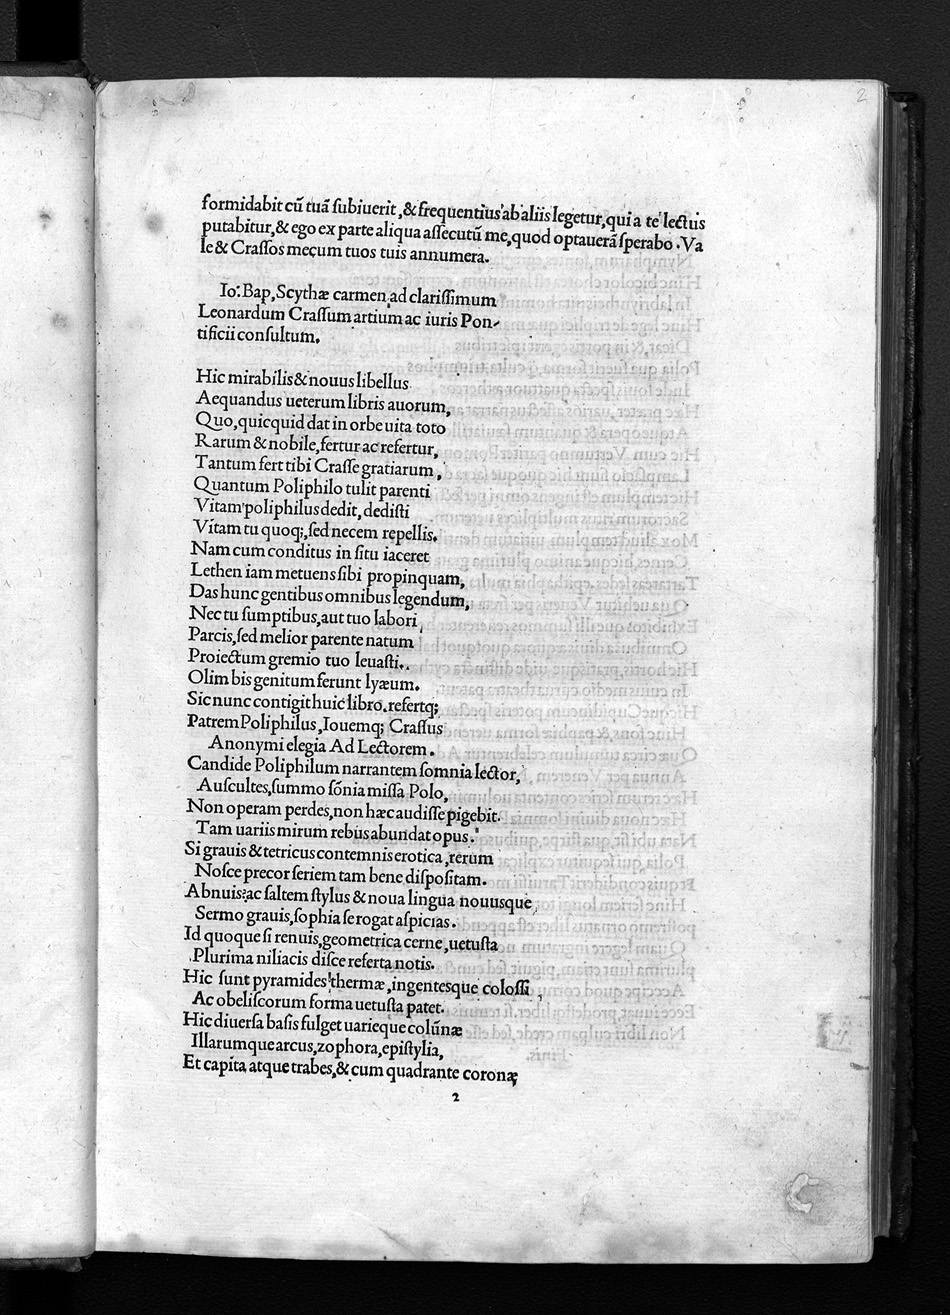 2
formidabit cũ tuã ſubiuerit,&frequentius ab aliis legetur,qui a te lectus
putabitur,& ego ex parte aliqua aſſecutũ me,quod optauerã ſperabo.Va
le & Craſſos mecum tuos tuis annumera.
Io.Bap,Scythæ carmen ad clariſſimum
Leonardum Craſſum artium ac iuris Pon-
tificii conſultum.
Hic mirabilis& nouus libellus
Aequandus ueterum libris auorum,
Quo,quicquid dat in orbe uita toto
Rarum & nobile,fertur ac refertur,
Tantum fert tibi Craſſe gratiarum,
Quantum Poliphilo tulit parenti
Vitam poliphilus dedit,dediſti
Vitam tu quoq;,ſed necem repellis.
Nam cum conditus in ſitu iaceret
Lethen iam metuens ſibi propinquam,
Das hunc gentibus omnibus legendum,
Nec tu ſumptibus,aut tuo labori
Parcis,ſed melior parente natum
Proiectum gremio tuo leuaſti.
Olim bis genitum ferunt lyæum.
Sic nunc contigit huic libro.refertq;
Patrem Poliphilus,Iouemq; Craſſus
Anonymi elegia Ad Lectorem.
Candide Poliphilum narrantem ſomnia lector,
Auſcultes,ſummo ſõnia miſſa Polo,
Non operam perdes,non hæc audiſſe pigebit.
Tam uariis mirum rebus abundat opus.
Si grauis & tetricus contemnis erotica,rerum
Noſce precor ſeriem tam bene diſpoſitam.
Abnuis?ac ſaltem ſtylus & noua lingua nouusque
Sermo grauis,ſophia ſe rogat aſpicias.
Id quoque ſi renuis,geometrica cerne,uetuſta
Plurima niliacis diſce referta notis.
Hic ſunt pyramides thermæ,ingentesque coloſſi
Ac obeliſcorum forma uetuſta patet.
Hic diuerſa baſis fulget uarieque colũnæ
Illarumque arcus,zophora,epiſtylia,
Et capita atque trabes,& cum quadrante coronæ
2